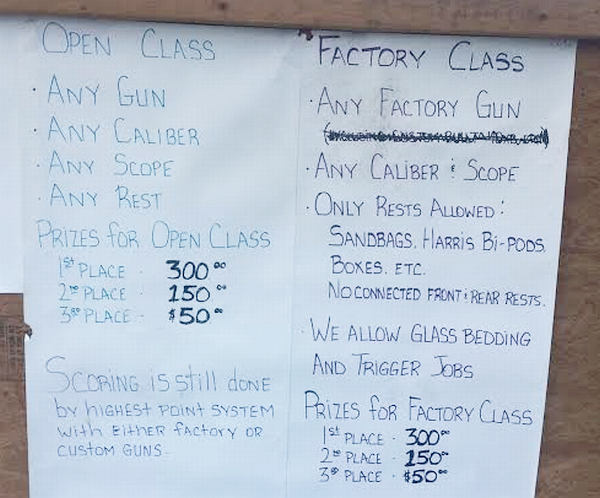 OPEN CLASS
· ANY GUN
· ANY CALIBER
· ANY SCOPE
· ANY REST
PRIZES FOR OPEN CLASS
1ST PLACE - 300.00
2ND PLACE - 150.00
3RD PLACE - $50.00
SCORING is still done
by highest POINT SYSTEM
with EITHER FACTORY OR
CUSTOM GUNS-
FACTORY CLASS
· ANY FACTORY GUN
· ANY CALIBER & SCOPE
· ONLY RESTS ALLOWED:
SANDBAGS, HARRIS Bi-PODS,
BOXES, ETC.
NO CONNECTED FRONT & REAR RESTS.
· WE ALLOW GLASS BEDDING
AND TRIGGER JOBS
PRIZES FOR FACTORY CLASS
1ST PLACE - 300.00
2ND PLACE - 150.00
3RD PLACE - $50.00